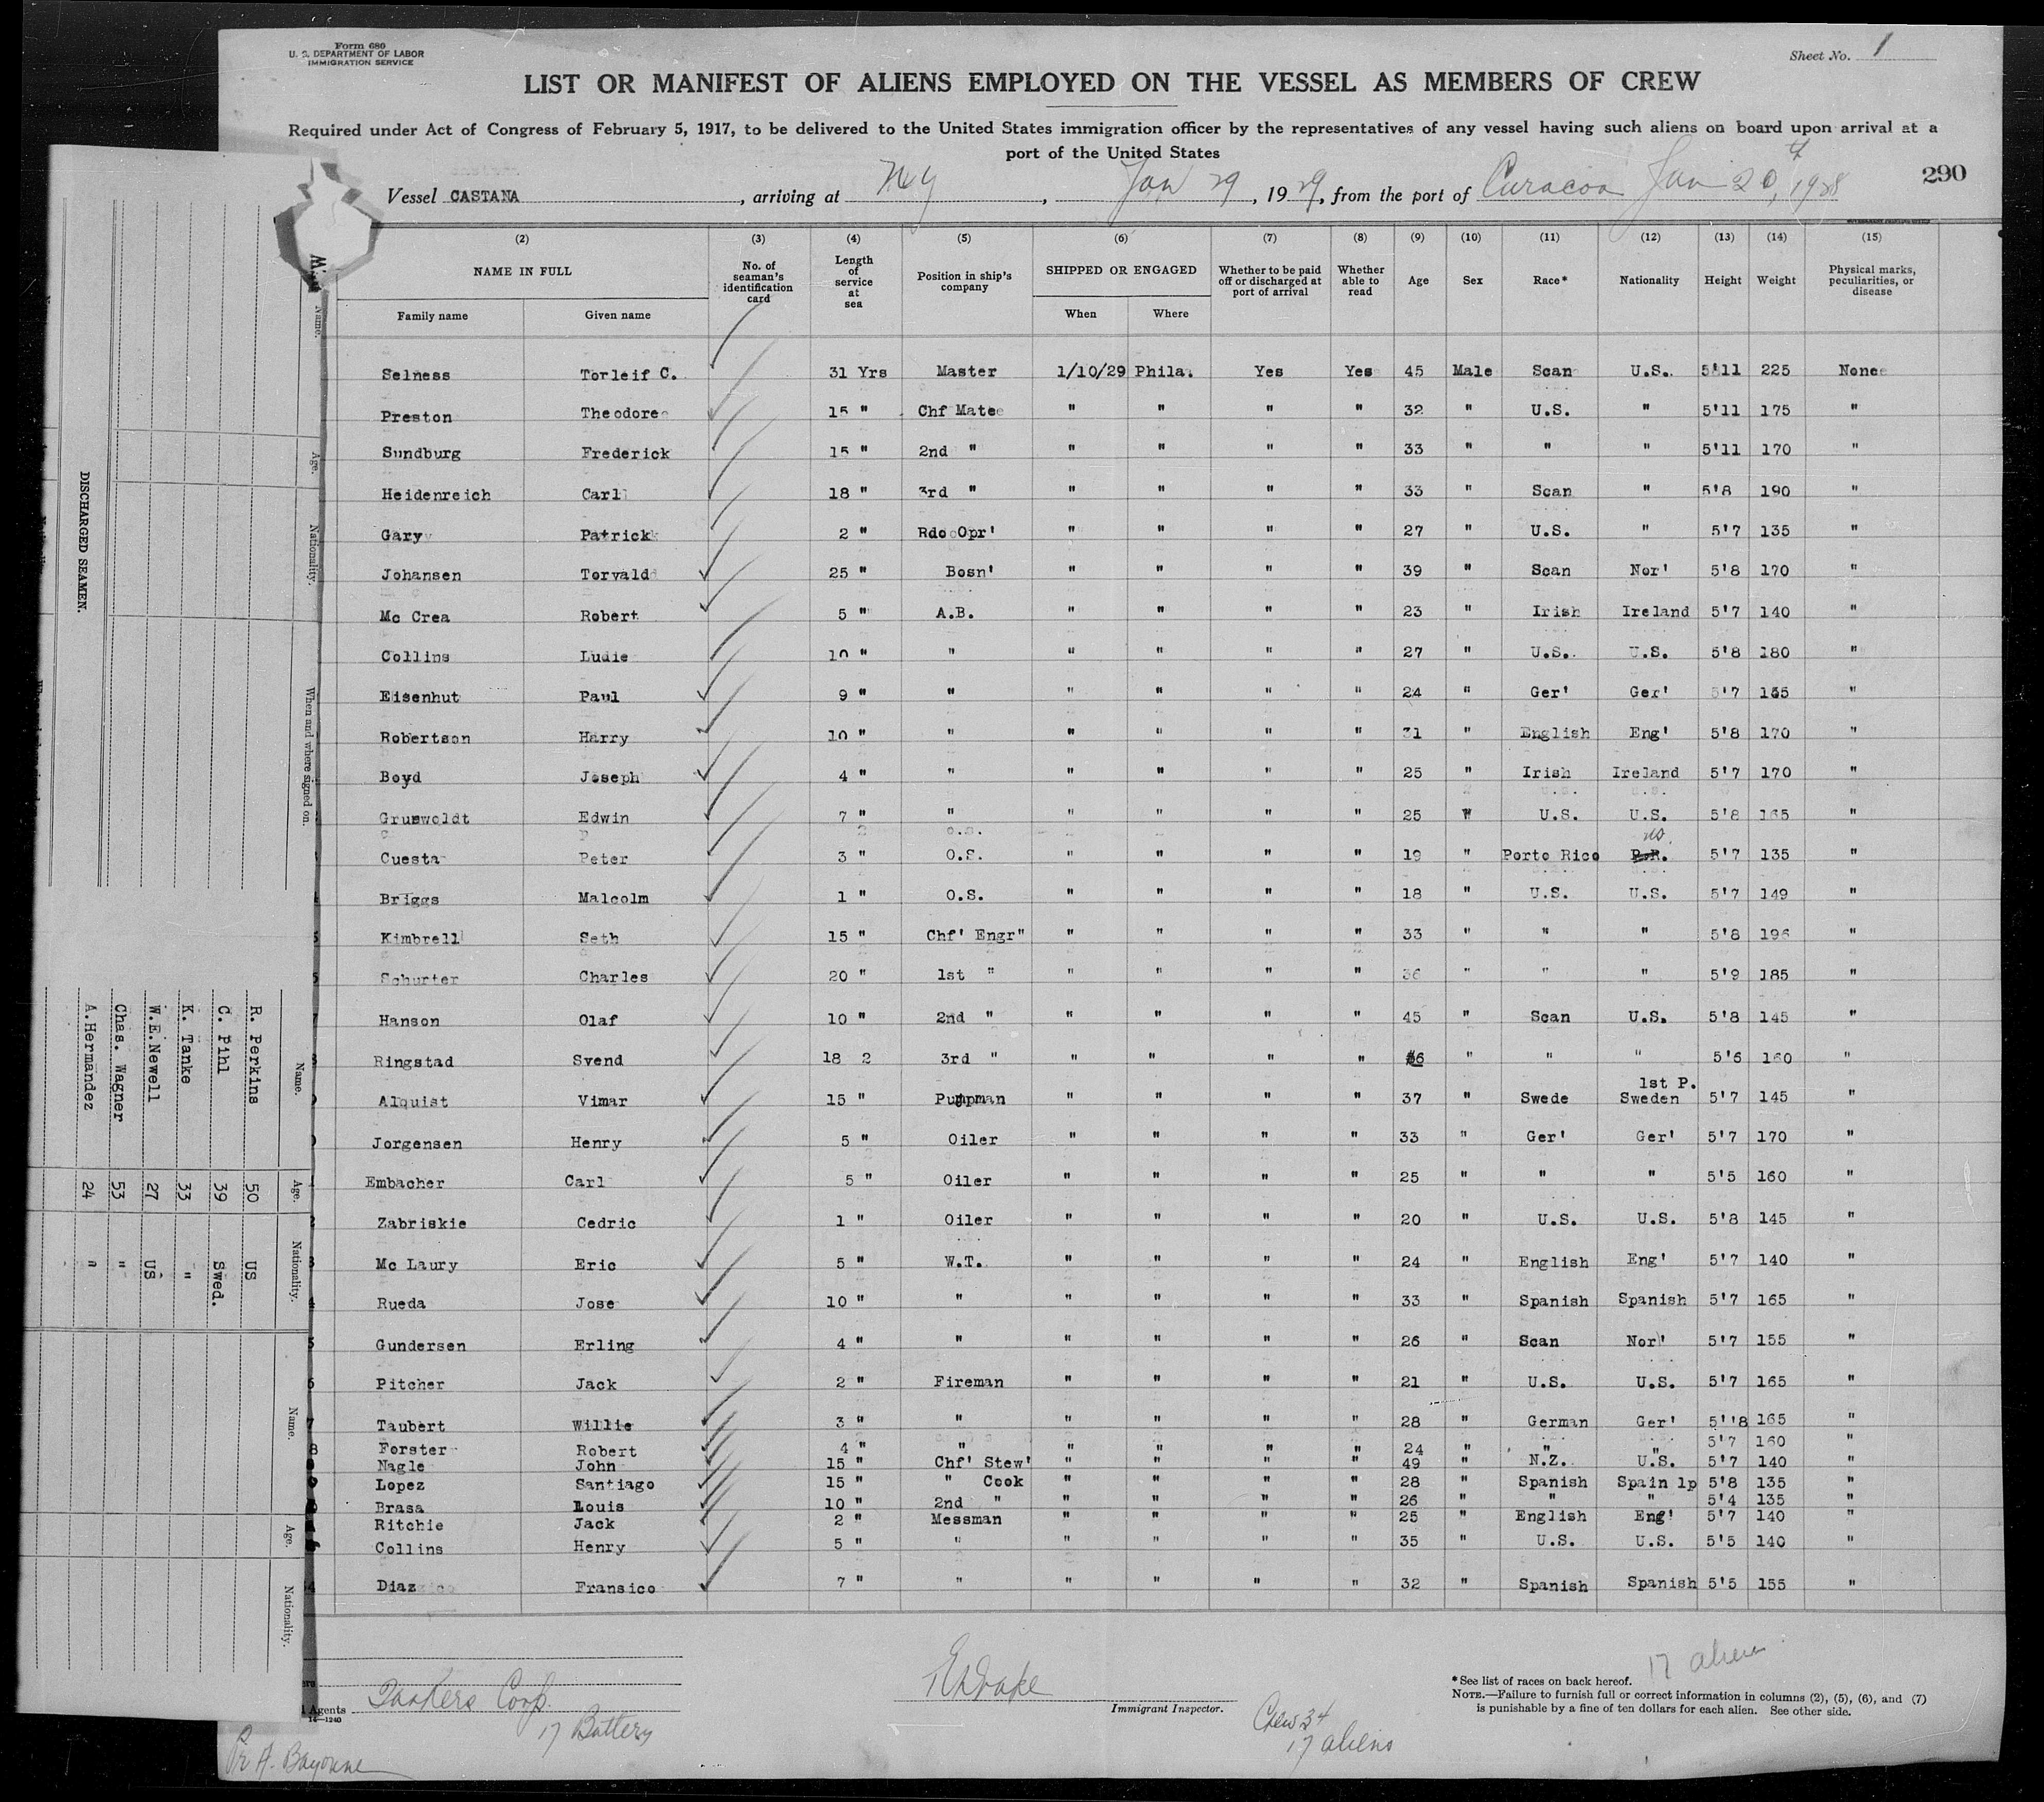 Form 680
U. S. DEPARTMENT OF LABOR
IMMIGRATION SERVICE
Sheet No. 1
LIST OR MANIFEST OF ALIENS EMPLOYED ON THE VESSEL AS MEMBERS OF CREW
Required under Act of Congress of February 5, 1917, to be delivered to the United States immigration officer by the representatives of any vessel having such aliens on board upon arrival at a
port of the United States
290
Vessel CASTANA, arriving at N Y, Jan 29, 1929, from the port of Curacoa Jan 20, 1928
(2) (3) (4) (5) (6) (7) (8) (9) (10) (11) (12) (13) (14) (15)
NAME IN FULL No. of seaman's identification card Length of service at sea Position in ship's company SHIPPED OR ENGAGED Whether to be paid off or discharged at port of arrival Whether able to read Age Sex Race* Nationality Height Weight Physical marks, peculiarities, or disease
Family name Given name When Where
Selness Torleif C. 31 Yrs Master 1/10/29 Phila. Yes Yes 45 Male Scan U.S. 5'11 225 None
Preston Theodore 15 " Chf Mate " " " " 32 " U.S. " 5'11 175 "
Sundburg Frederick 15 " 2nd " " " " " 33 " " " 5'11 170 "
Heidenreich Carl 18 " 3rd " " " " " 33 " Scan " 5'8 190 "
Gary Patrick 2 " Rdo Opr' " " " " 27 " U.S. " 5'7 135 "
Johansen Torvald 25 " Bosn' " " " " 39 " Scan Nor' 5'8 170 "
Mc Crea Robert 5 " A.B. " " " " 23 " Irish Ireland 5'7 140 "
Collins Ludie 10 " " " " " " 27 " U.S. U.S. 5'8 180 "
Eisenhut Paul 9 " " " " " " 24 " Ger' Ger' 5'7 165 "
Robertson Harry 10 " " " " " " 31 " English Eng' 5'8 170 "
Boyd Joseph 4 " " " " " " 25 " Irish Ireland 5'7 170 "
Grunwoldt Edwin 7 " " " " " " 25 " U.S. U.S. 5'8 165 "
US
Cuesta Peter 3 " O.S. " " " " 19 " Porto Rico P.R. 5'7 135 "
Briggs Malcolm 1 " O.S. " " " " 18 " U.S. U.S. 5'7 149 "
Kimbrell Seth 15 " Chf' Engr" " " " " 33 " " " 5'8 196 "
Schurter Charles 20 " 1st " " " " " 36 " " " 5'9 185 "
Hanson Olaf 10 " 2nd " " " " " 45 " Scan U.S. 5'8 145 "
Ringstad Svend 18 2 3rd " " " " " " " " 5'6 160 "
1st P.
Alquist Vimar 15 " Pumpman " " " " 37 " Swede Sweden 5'7 145 "
Jorgensen Henry 5 " Oiler " " " " 33 " Ger' Ger' 5'7 170 "
Embacher Carl 5 " Oiler " " " " 25 " " " 5'5 160 "
Zabriskie Cedric 1 " Oiler " " " " 20 " U.S. U.S. 5'8 145 "
Mc Laury Eric 5 " W.T. " " " " 24 " English Eng' 5'7 140 "
Rueda Jose 10 " " " " " " 33 " Spanish Spanish 5'7 165 "
Gundersen Erling 4 " " " " " " 26 " Scan Nor' 5'7 155 "
Pitcher Jack 2 " Fireman " " " " 21 " U.S. U.S. 5'7 165 "
Taubert Willie 3 " " " " " " 28 " German Ger' 5''8 165 "
Forster Robert 4 " " " " " " 24 " " " 5'7 160 "
Nagle John 15 " Chf' Stew' " " " " 49 " N.Z. U.S. 5'7 140 "
Lopez Santiago 15 " " Cook " " " " 28 " Spanish Spain 1p 5'8 135 "
Brasa Louis 10 " 2nd " " " " " 26 " " " 5'4 135 "
Ritchie Jack 2 " Messman " " " " 25 " English Eng' 5'7 140 "
Collins Henry 5 " " " " " " 35 " U.S. U.S. 5'5 140 "
Diaz Fransico 7 " " " " " " 32 " Spanish Spanish 5'5 155 "
Agents Tankers Corp.
17 Battery
14—1240
Pr A. Bayonne
Immigrant Inspector.
Crew 34
17 aliens
17 aliens
*See list of races on back hereof.
NOTE.—Failure to furnish full or correct information in columns (2), (5), (6), and (7)
is punishable by a fine of ten dollars for each alien. See other side.
DISCHARGED SEAMEN.
Name. Age. Nationality. When and where signed on.
Name. Age. Nationality.
R. Perkins 50 US
C. Pihl 39 Swed.
K. Tanke 33 "
W.E.Newell 27 US
Chas. Wagner 53 "
A.Hermandez 24 "
Name. Age. Nationality.